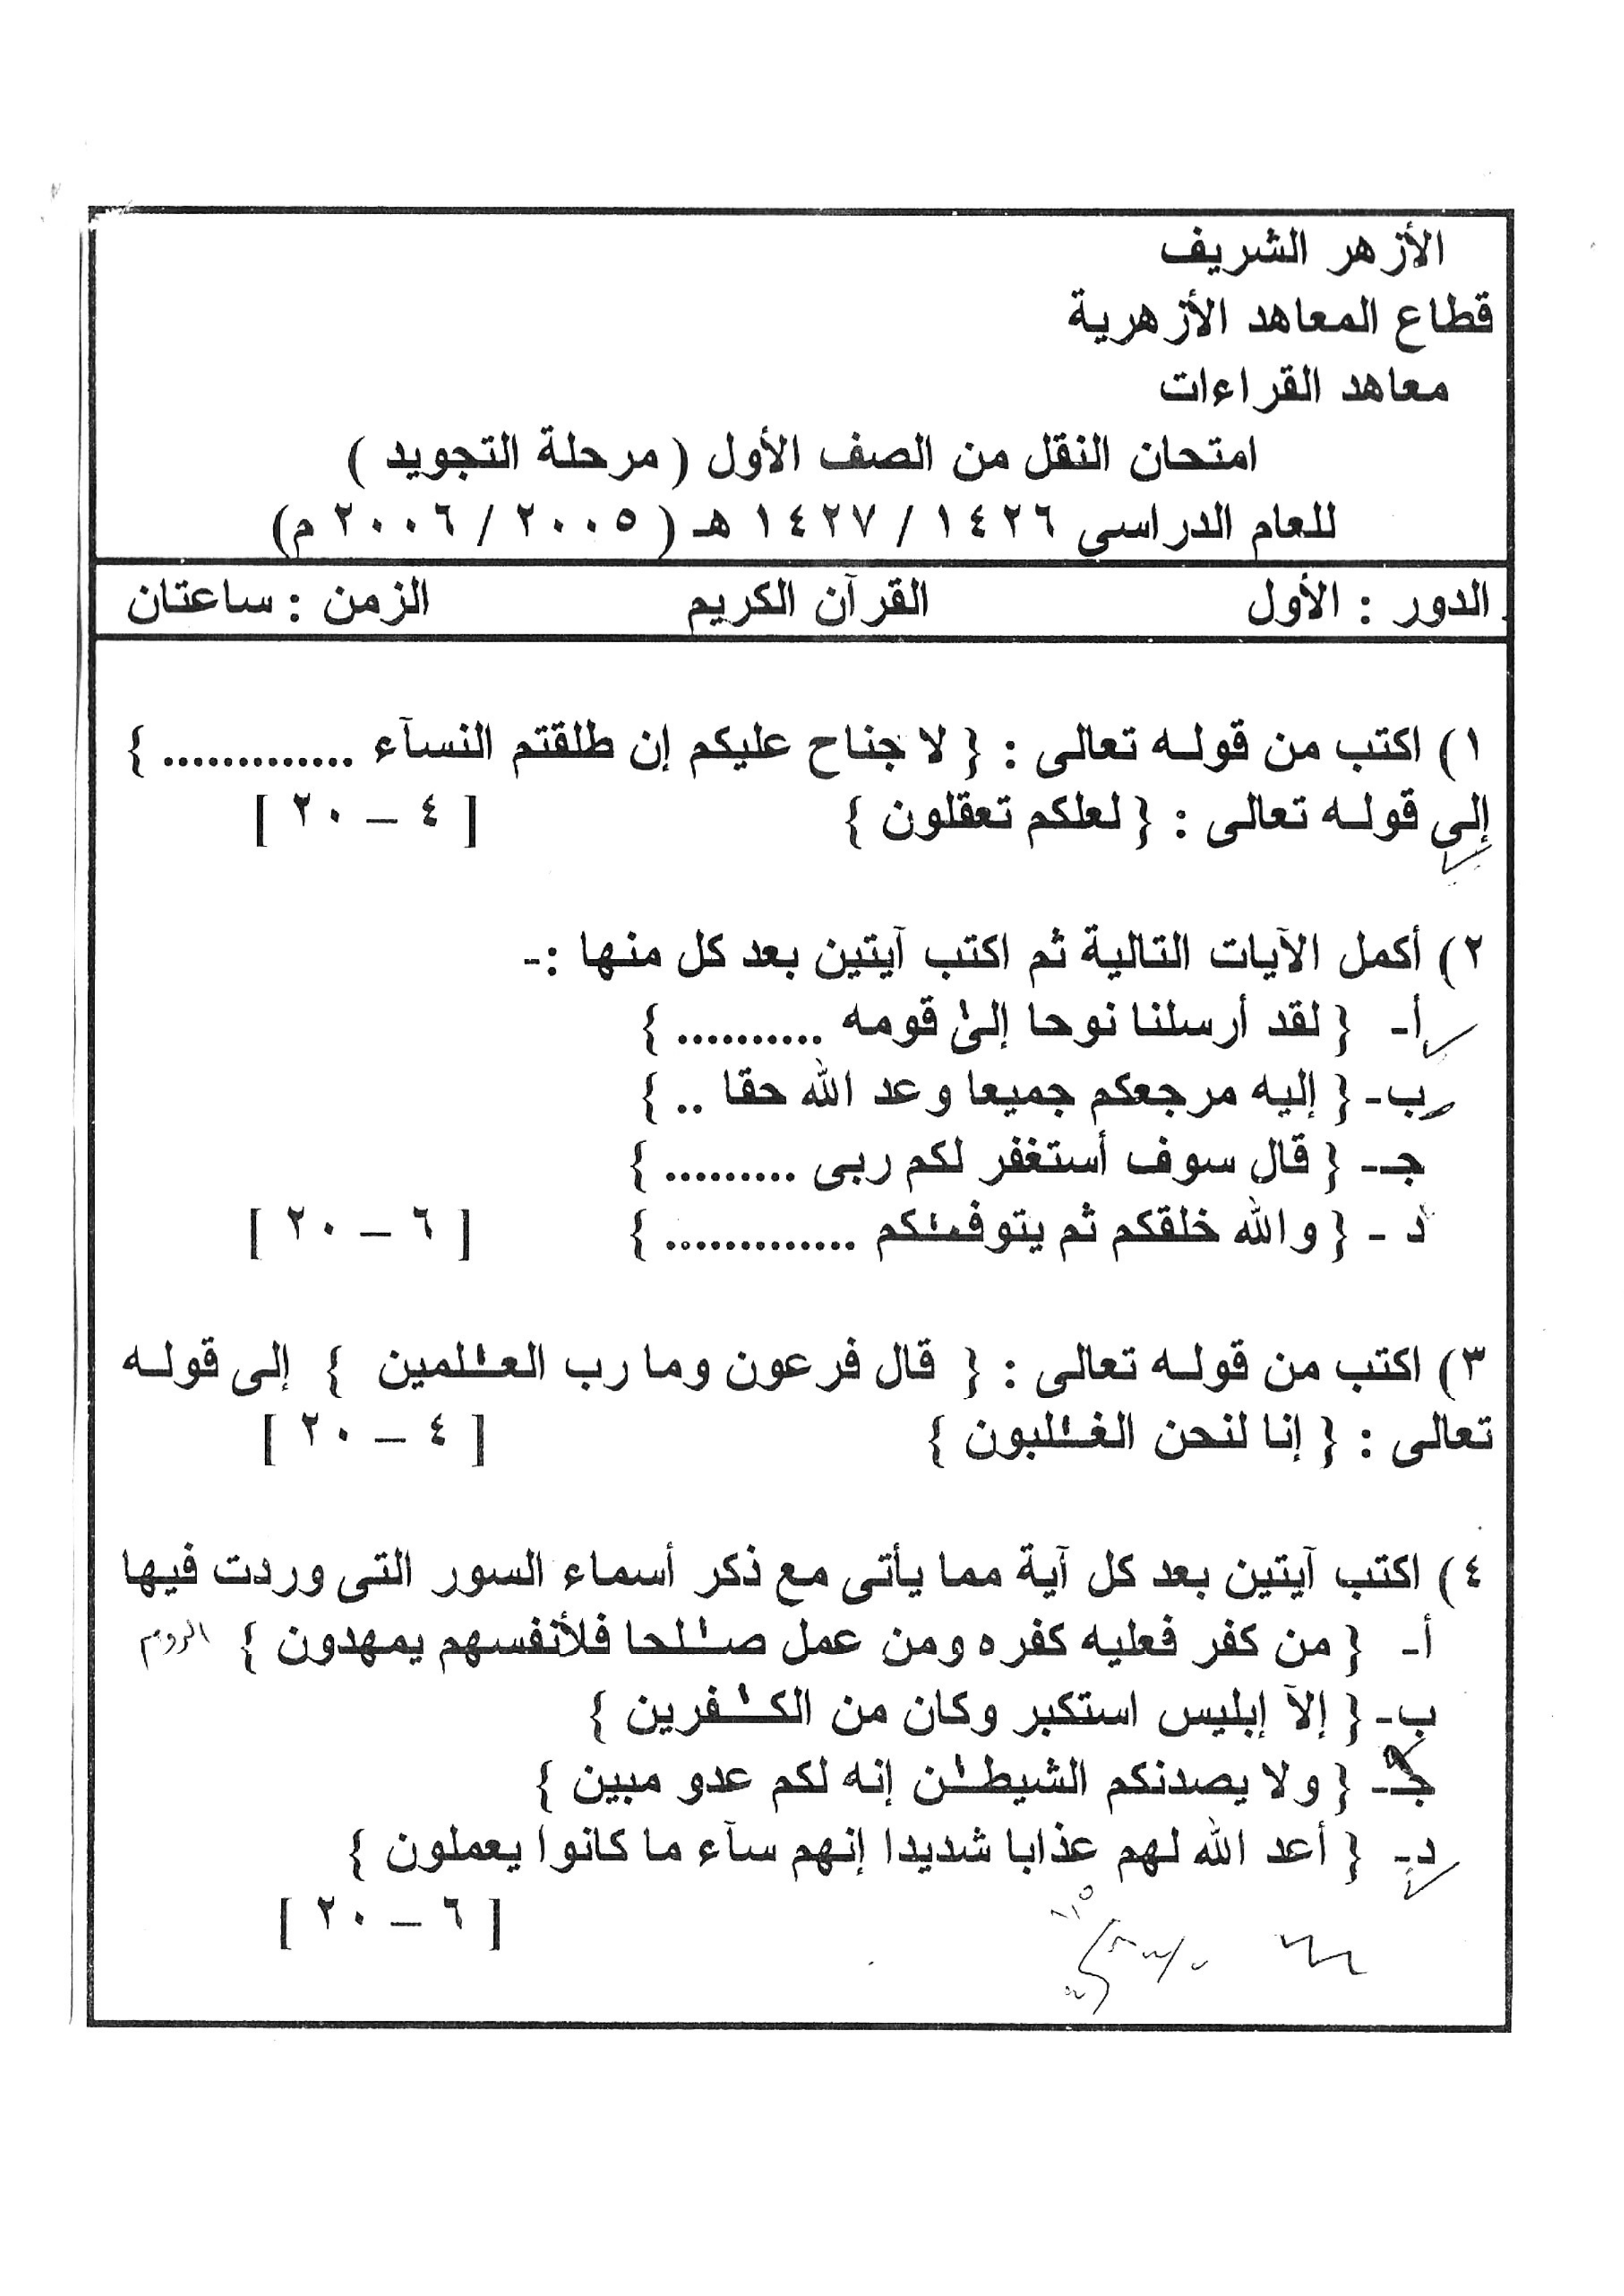 الأزهر الشريف
قطاع المعاهد الأزهرية
معاهد القراءات
امتحان النقل من الصف الأول ( مرحلة التجويد )
للعام الدراسى ١٤٢٦ / ١٤٢٧ هـ ( ٢٠٠٥ / ٢٠٠٦ م)
الدور : الأول القرآن الكريم الزمن : ساعتان
١) اكتب من قوله تعالى : { لا جناح عليكم إن طلقتم النسآء ............. }
إلى قوله تعالى : { لعلكم تعقلون } [ ٤ – ٢٠ ]
٢) أكمل الآيات التالية ثم اكتب آيتين بعد كل منها :-
أ- { لقد أرسلنا نوحا إلىٰ قومه .......... }
ب- { إليه مرجعكم جميعا وعد الله حقا .. }
جـ- { قال سوف أستغفر لكم ربى ......... }
د - { والله خلقكم ثم يتوفىٰكم ............. } [ ٦ – ٢٠ ]
٣) اكتب من قوله تعالى : { قال فرعون وما رب العـٰلمين } إلى قوله
تعالى : { إنا لنحن الغـٰلبون } [ ٤ – ٢٠ ]
٤) اكتب آيتين بعد كل آية مما يأتى مع ذكر أسماء السور التى وردت فيها
أ- { من كفر فعليه كفره ومن عمل صـٰلحا فلأنفسهم يمهدون } الروم
ب- { إلآ إبليس استكبر وكان من الكـٰفرين }
جـ- { ولا يصدنكم الشيطـٰن إنه لكم عدو مبين }
د- { أعد الله لهم عذابا شديدا إنهم سآء ما كانوا يعملون }
[ ٦ – ٢٠ ]